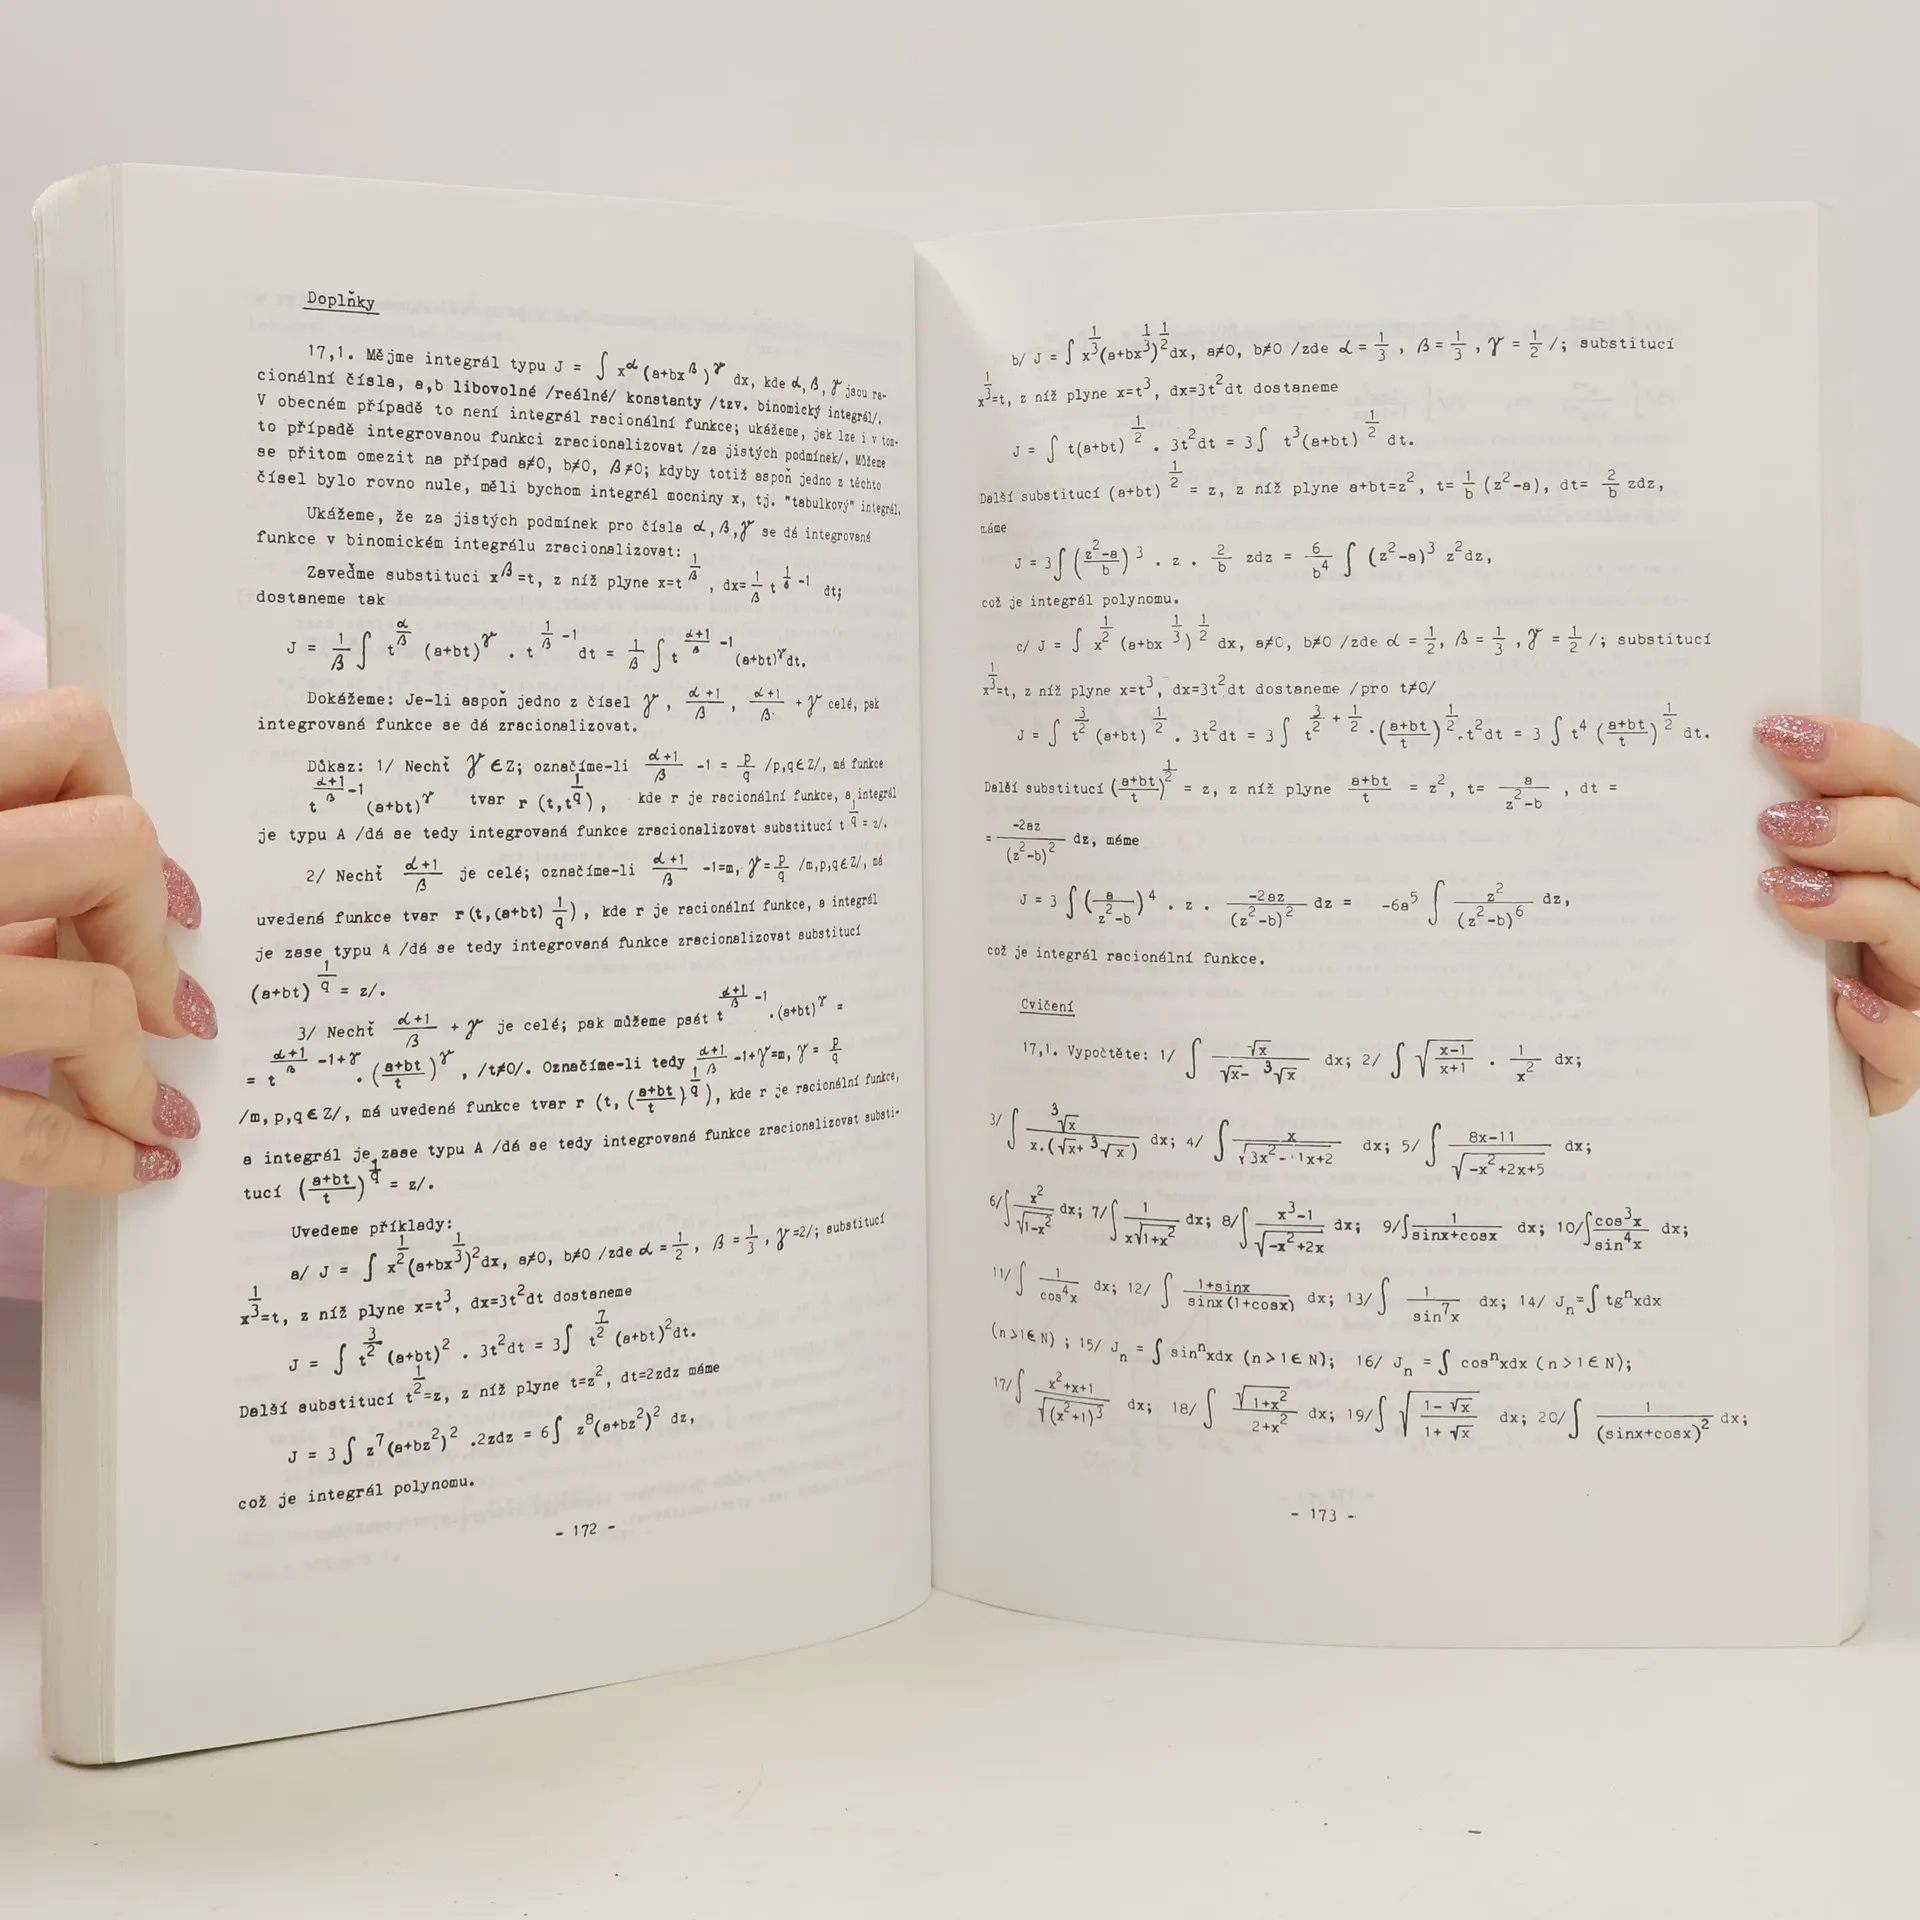 Doplňky
17,1. Mějme integrál typu J = ∫ x^α (a+bx^β)^γ dx, kde α, β, γ jsou ra-
cionální čísla, a,b libovolné /reálné/ konstanty /tzv. binomický integrál/.
V obecném případě to není integrál racionální funkce; ukážeme, jak lze i v tom-
to případě integrovanou funkci zracionalizovat /za jistých podmínek/. Můžeme
se přitom omezit na případ a≠0, b≠0, β≠0; kdyby totiž aspoň jedno z těchto
čísel bylo rovno nule, měli bychom integrál mocniny x, tj. "tabulkový" integrál.
Ukážeme, že za jistých podmínek pro čísla α, β, γ se dá integrovaná
funkce v binomickém integrálu zracionalizovat:
Zaveďme substituci x^β=t, z níž plyne x=t^(1/β), dx= 1/β t^(1/β -1) dt;
dostaneme tak
J = 1/β ∫ t^(α/β) (a+bt)^γ . t^(1/β -1) dt = 1/β ∫ t^((α+1)/β -1) (a+bt)^γ dt.
Dokážeme: Je-li aspoň jedno z čísel γ, (α+1)/β, (α+1)/β + γ celé, pak
integrovaná funkce se dá zracionalizovat.
Důkaz: 1/ Nechť γ ∈ Z; označíme-li (α+1)/β -1 = p/q /p,q∈Z/, má funkce
t^((α+1)/β -1) (a+bt)^γ tvar r (t,t^(1/q)), kde r je racionální funkce, a integrál
je typu A /dá se tedy integrovaná funkce zracionalizovat substitucí t^(1/q) = z/.
2/ Nechť (α+1)/β je celé; označíme-li (α+1)/β -1=m, γ = p/q /m,p,q∈Z/, má
uvedená funkce tvar r(t,(a+bt) 1/q), kde r je racionální funkce, a integrál
je zase typu A /dá se tedy integrovaná funkce zracionalizovat substitucí
(a+bt)^(1/q) = z/.
3/ Nechť (α+1)/β + γ je celé; pak můžeme psát t^((α+1)/β -1) .(a+bt)^γ =
= t^((α+1)/β -1+γ) . ((a+bt)/t)^γ, /t≠0/. Označíme-li tedy (α+1)/β -1+γ=m, γ = p/q
/m,p,q∈Z/, má uvedená funkce tvar r (t, ((a+bt)/t)^(1/q)), kde r je racionální funkce,
a integrál je zase typu A /dá se tedy integrovaná funkce zracionalizovat substi-
tucí ((a+bt)/t)^(1/q) = z/.
Uvedeme příklady:
a/ J = ∫ x^(1/2)(a+bx^(1/3))^2 dx, a≠0, b≠0 /zde α = 1/2, β = 1/3, γ =2/; substitucí
x^(1/3)=t, z níž plyne x=t^3, dx=3t^2dt dostaneme
J = ∫ t^(3/2) (a+bt)^2 . 3t^2dt = 3∫ t^(7/2) (a+bt)^2dt.
Další substitucí t^(1/2)=z, z níž plyne t=z^2, dt=2zdz máme
J = 3 ∫ z^7(a+bz^2)^2 .2zdz = 6∫ z^8(a+bz^2)^2 dz,
což je integrál polynomu.
- 172 -
b/ J = ∫ x^(1/3)(a+bx^(1/3))^(1/2)dx, a≠0, b≠0 /zde α = 1/3, β = 1/3, γ = 1/2 /; substitucí
x^(1/3)=t, z níž plyne x=t^3, dx=3t^2dt dostaneme
J = ∫ t(a+bt)^(1/2) . 3t^2dt = 3∫ t^3(a+bt)^(1/2) dt.
Další substitucí (a+bt)^(1/2) = z, z níž plyne a+bt=z^2, t= 1/b (z^2-a), dt= 2/b zdz,
máme
J = 3∫ ((z^2-a)/b)^3 . z . 2/b zdz = 6/b^4 ∫ (z^2-a)^3 z^2dz,
což je integrál polynomu.
c/ J = ∫ x^(1/2) (a+bx^(1/3))^(1/2) dx, a≠0, b≠0 /zde α = 1/2, β = 1/3, γ = 1/2 /; substitucí
x^(1/3)=t, z níž plyne x=t^3, dx=3t^2dt dostaneme /pro t≠0/
J = ∫ t^(3/2) (a+bt)^(1/2) . 3t^2dt = 3 ∫ t^(3/2 + 1/2) .((a+bt)/t)^(1/2) . t^2dt = 3 ∫ t^4 ((a+bt)/t)^(1/2) dt.
Další substitucí ((a+bt)/t)^(1/2) = z, z níž plyne (a+bt)/t = z^2, t= a/(z^2-b), dt =
= -2az/(z^2-b)^2 dz, máme
J = 3 ∫ (a/(z^2-b))^4 . z . -2az/(z^2-b)^2 dz = -6a^5 ∫ z^2/(z^2-b)^6 dz,
což je integrál racionální funkce.
Cvičení
17,1. Vypočtěte: 1/ ∫ √x/(√x- ³√x) dx; 2/ ∫ √((x-1)/(x+1)) . 1/x^2 dx;
3/ ∫ ³√x/(x.(√x+ ³√x)) dx; 4/ ∫ x/√(3x^2-11x+2) dx; 5/ ∫ (8x-11)/√(-x^2+2x+5) dx;
6/∫ x^2/√(1-x^2) dx; 7/∫ 1/(x√(1+x^2)) dx; 8/∫ (x^3-1)/√(-x^2+2x) dx; 9/∫ 1/(sinx+cosx) dx; 10/∫ cos^3x/sin^4x dx;
11/∫ 1/cos^4x dx; 12/ ∫ (1+sinx)/(sinx(1+cosx)) dx; 13/∫ 1/sin^7x dx; 14/ J_n=∫ tg^nxdx
(n>1∈N) ; 15/ J_n = ∫ sin^nxdx (n>1∈N); 16/ J_n = ∫ cos^nxdx (n>1∈N);
17/∫ (x^2+x+1)/√((x^2+1)^3) dx; 18/ ∫ √(1+x^2)/(2+x^2) dx; 19/∫ √((1- √x)/(1+ √x)) dx; 20/∫ 1/(sinx+cosx)^2 dx;
- 173 -